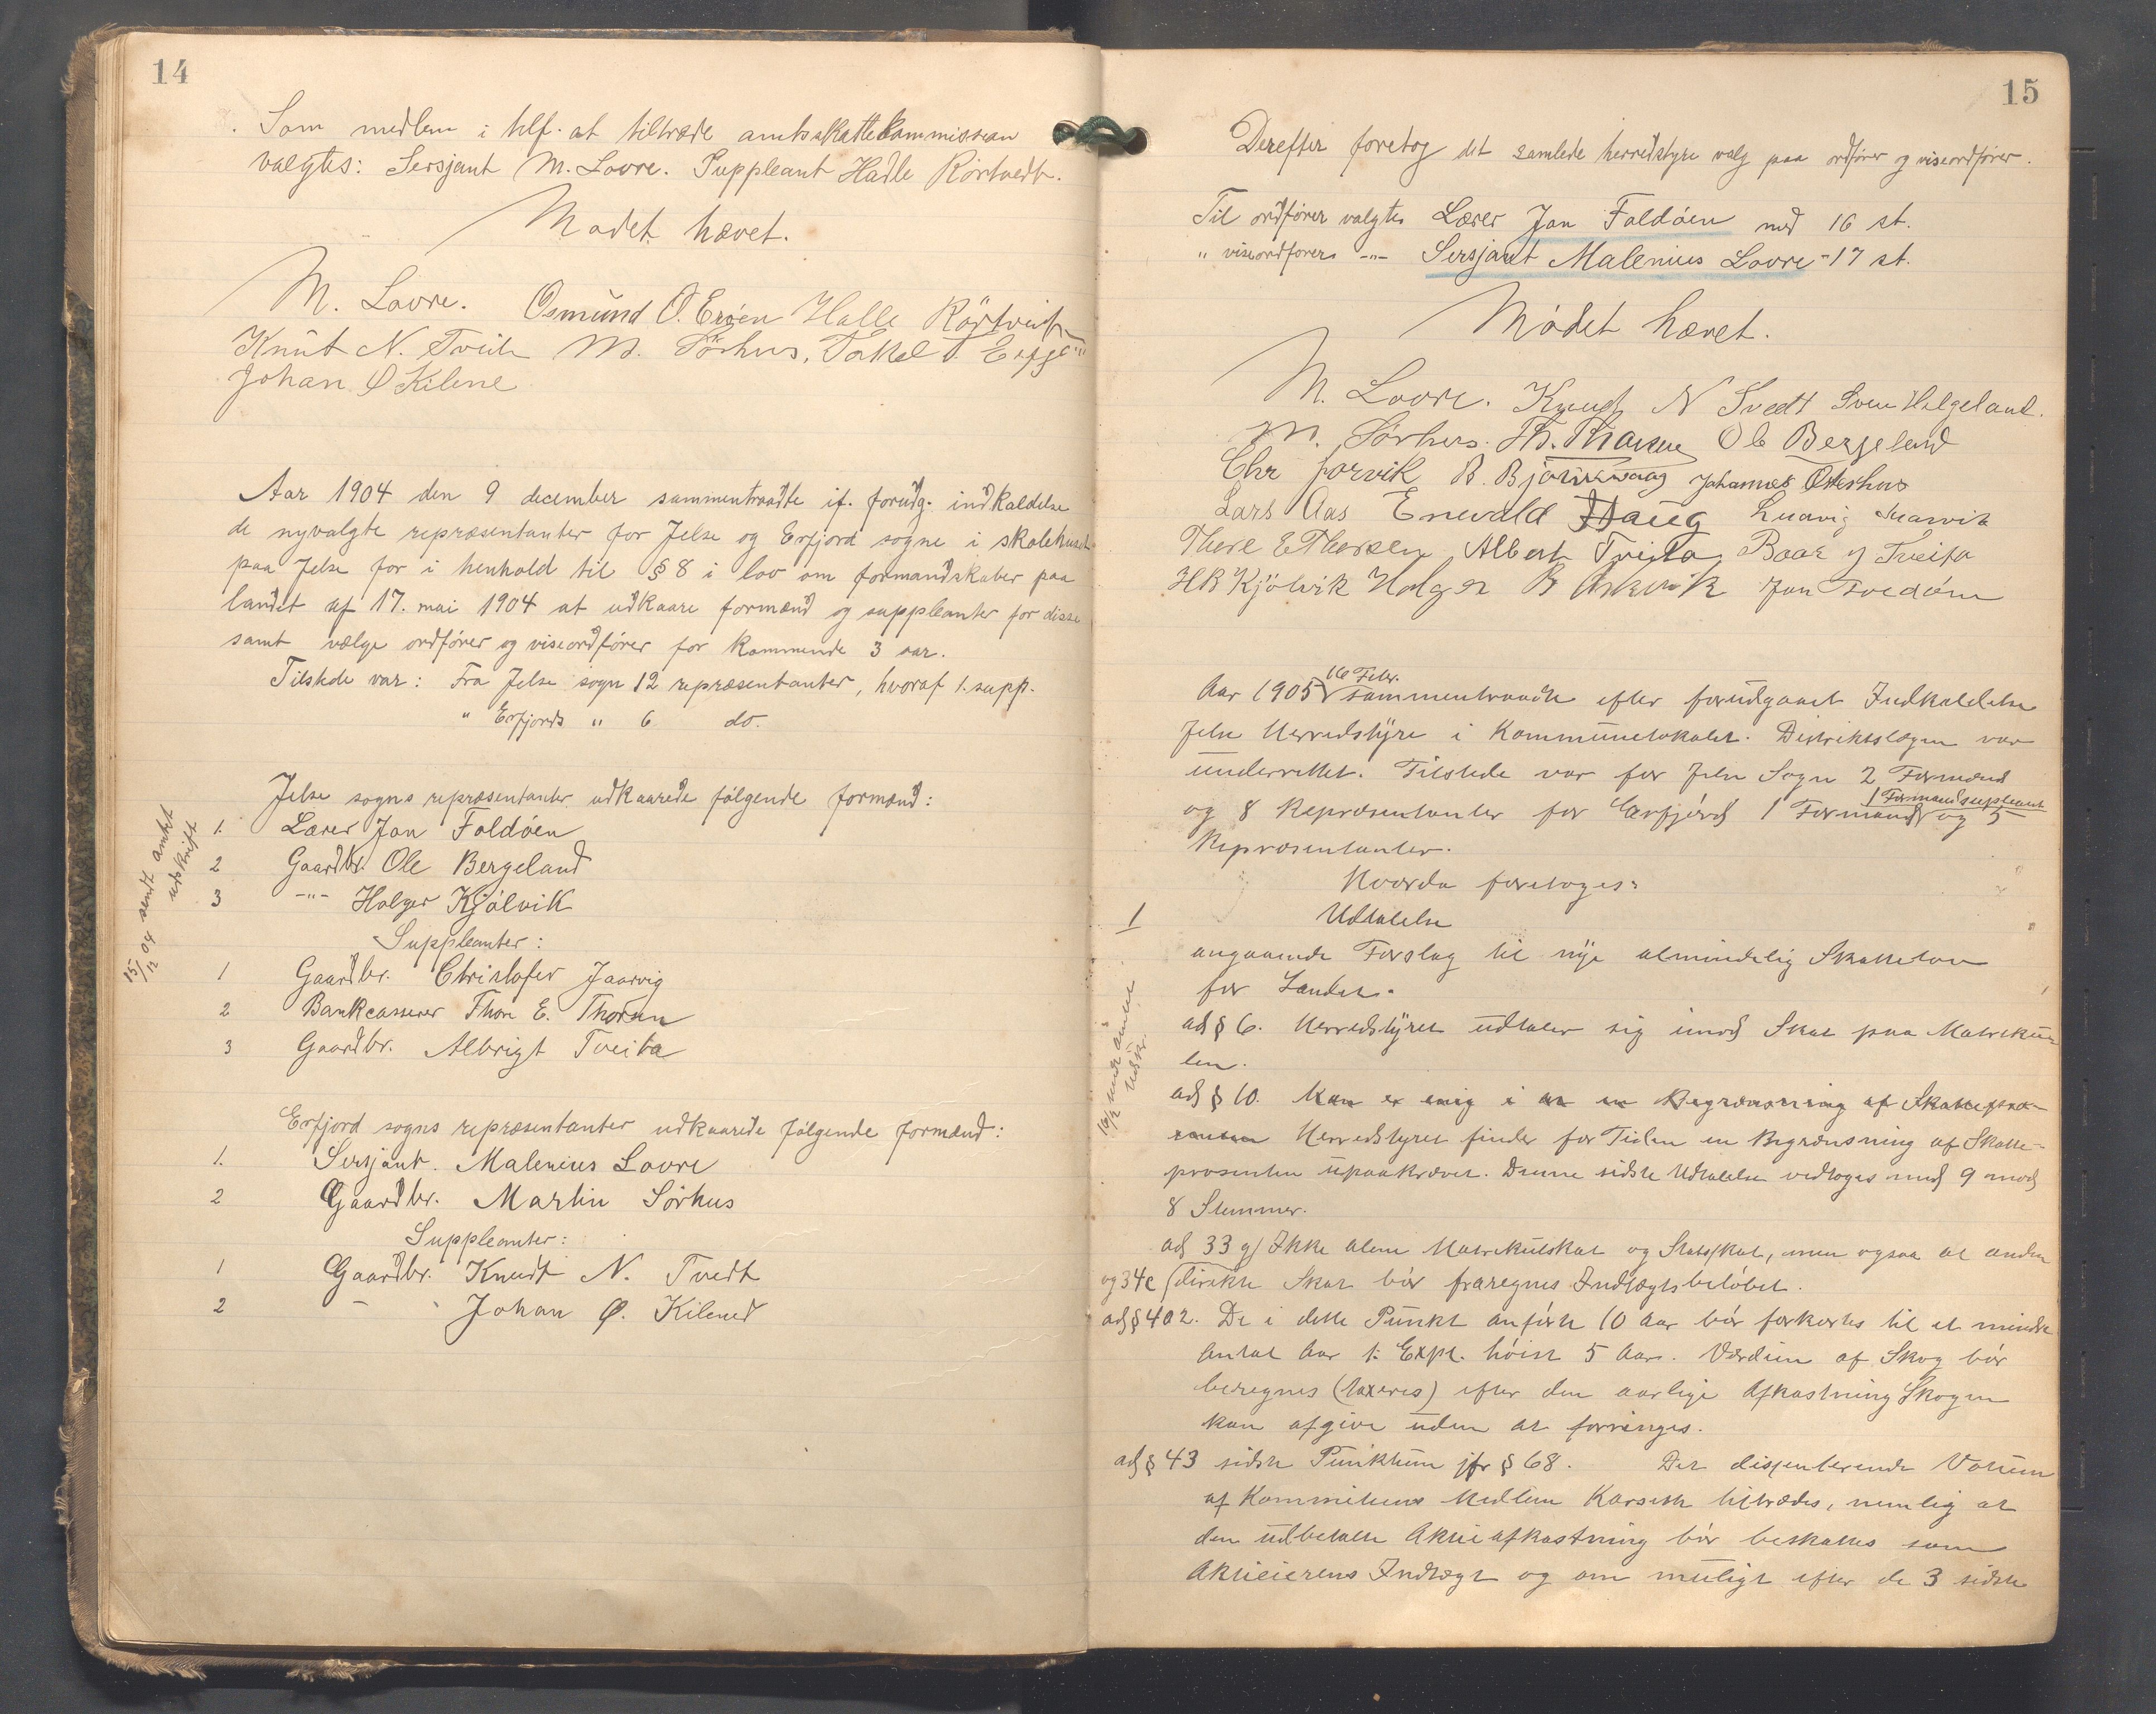 14
Som medlem i tilf. at tiltræde amtsskattekommission
valgtes: Sersjant M. Lovre. Suppleant Hadle Rørtvedt.
Mødet hævet.
M. Lovre. Osmund O. Eröen Halle Rörtveit
Knut N. Tveit M. Sörhus, Takel T.
Johan Ø Kilene
Aar 1904 den 9 december sammentraadte if. forudg. indkaldelse
de nyvalgte repræsentanter for Jelse og Erfjord sogne i skolehuset
paa Jelse for i henhold til § 8 i lov om formandskaber paa
landet af 17. mai 1904 at udkaare formænd og suppleanter for disse
samt vælge ordfører og viseordfører for kommende 3 aar.
Tilstede var: Fra Jelse sogn 12 repræsentanter, hvoraf 1. supp.
" Erfjords " 6 do.
Jelse sogns repræsentanter udkaarede følgende formænd:
1. Lærer Jon Foldøen
2 Gaardbr. Ole Bergeland
3 -"- Holger Kjølvik
Suppleanter:
1 Gaardbr. Christofer Jaarvig
2 Bankcasserer Thore E. Thorsen
3 Gaardbr. Albrigt Tveita
15/12 04 sendt amtet
udskrift
Erfjord sogns repræsentanter udkaarede følgende formænd:
1. Sersjant. Malenius Lovre
2 Gaardbr. Martin Sørhus
Suppleanter:
1 Gaardbr. Knudt N. Tvedt
2 - " Johan Ø. Kilened
15
Derefter foretog det samlede herredstyre valg paa ordfører og viseordfører.
Til ordfører valgtes Lærer Jon Foldøen med 16 st.
" viseordførers -"- Sersjant Malenius Lovre - 17 st.
Mødet hævet.
M. Lovre. Knudt N Tvedt Sven Helgeland.
M. Sörhus. Th. Ole Bergeland
Chr Jorvik B. Johannes Østerhus
Lars Aas Enevald Haug Ludvig
Thore E Thorsen Albert Tveita Baar Tveita
H B Kjölvik Holger B Jon Foldöen
Aar 1905 16 Febr. sammentraadte efter forudgaaet Indkaldelse
Jelse Herredstyre i Kommunelokalet. Distriktslægen var
underrettet. Tilstede var for Jelse Sogn 2 Formænd
og 8 Repræsentanter for Erfjord 1 Formand 1 Formandsupleant og 5
Repræsentanter.
Hvorda foretoges:
1 Udtalelse
angaaende Forslag til nye almindelig Skattelov
for Landet.
ad § 6. Herredstyret udtaler sig imod Skat paa Matriku-
len.
ad § 10. Man er enig i at en Begrænsning af Skattepro-
senten Herredstyret finder for Tiden en Begrænsning af Skatte-
prosenten upaakrævet. Denne sidste Udtalelse vedtoges med 9 mod
8 Stemmer.
ad 33 g) Ikke alene Matrikulskat og Statsskat, men ogsaa al anden
og 34c direkte Skat bør fraregnes Indtægtsbeløbet.
ad § 40 2. De i dette Punkt anførte 10 Aar bør forkortes til et mindre
Antal Aar t. Expl. høist 5 Aar. Værdien af Skog bør
beregnes (taxeres) efter den aarlige Afkastning Skogen
kan afgive uden at forringes.
ad § 43 sidste Punktum jfr § 68. Det dissenterende Votum
af Kommiteens Medlem Karseth tiltrædes, nemlig at
den udbetalte Aktieafkastning bør beskattes som
Aktieierens Indtægt og om muligt efter de 3 sidste